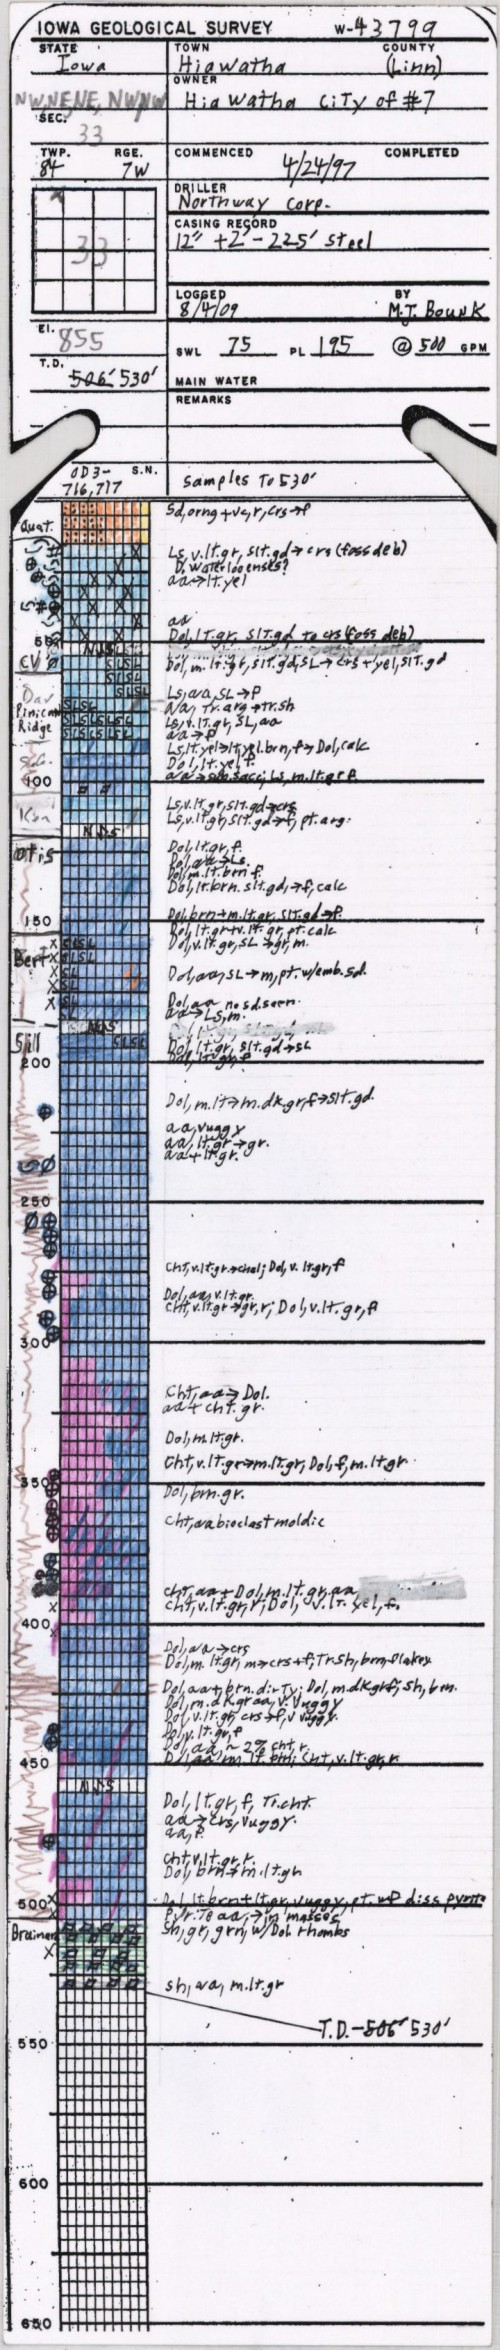 IOWA GEOLOGICAL SURVEY W-43799
STATE TOWN COUNTY
Iowa Hiawatha (Linn)
OWNER
NW,NE,NE,NW,NW Hiawatha City of #7
SEC.
33
TWP. RGE. COMMENCED COMPLETED
84 7W 4/24/97
DRILLER
Northway Corp.
CASING RECORD
33 12" +2'-225' steel
LOGGED BY
8/4/09 M.J. Bounk
El. 855
SWL 75 PL 195 @ 500 GPM
T.D.
506' 530' MAIN WATER
REMARKS
OD3- S.N.
716,717 Samples To 530'
Quat. Sd, orng + vc, r, crs→f
Ls, v.lt.gr, slt.gd→crs (foss deb)
D. waterlooenses?
aa→lt.yel
aa
Dol, lt.gr, slt.gd to crs (foss deb)
50 NJS
CV Dol, m.lt.gr, slt.gd, SL→crs + yel, slt.gd
Dav Ls, aa, SL→f
Pinicon aa, Tr.arg→tr.sh
Ridge Ls, v.lt.gr, SL, aa
aa→f
Ls, lt.yel→lt.yel.brn, f→Dol, calc
Dol, lt.yel, f
100 aa→sub.sacc; Ls, m.lt.gr f
Ken Ls, v.lt.gr, slt.gd→crs
Ls, v.lt.gr, slt.gd→f, pt.arg.
NJS
Otis Dol, lt.gr, f.
Dol, aa→Ls.
Dol, m.lt.brn f.
Dol, lt.brn. slt.gd,→f, calc
150 Dol, brn+m.lt.gr, slt.gd→f.
Dol, lt.gr+v.lt.gr, pt.calc
Bert Dol, v.lt.gr, SL→gr, m.
Dol, aa, SL→m, pt. w/emb.sd.
Dol, aa no sd.seen.
aa→Ls, m.
NJS
Sil Dol, lt.gr, slt.gd→SL
200 Dol, lt.gr, f
Dol, m.lt→m.dk.gr, f→slt.gd.
aa, vuggy
aa, lt.gr→gr.
aa + lt.gr.
250
Cht, v.lt.gr→chal; Dol, v.lt.gr, f
Dol, aa, v.lt.gr.
Cht, v.lt.gr→gr, r; Dol, v.lt.gr, f
300
Cht, aa→Dol.
aa + cht.gr.
Dol, m.lt.gr.
Cht, v.lt.gr→m.lt.gr; Dol, f, m.lt.gr.
350 Dol, brn.gr.
Cht, aa bioclast moldic
Cht, aa + Dol, m.lt.gr, aa
Cht, v.lt.gr, r; Dol, v.lt.yel, f.
400
Dol, aa→crs
Dol, m.lt.gr, m→crs+f; Tr.sh, brn, flakey
Dol, aa+brn.dirty; Dol, m.dk.gr f; sh, brn.
Dol, m.dk.gr aa, v.vuggy
Dol, v.lt.gr, crs→f, v vuggy.
Dol, v.lt.gr, f
Dol, aa ~ 2% cht, r.
450 Dol, aa/m.lt.brn; Cht, v.lt.gr, r.
NJS
Dol, lt.gr, f, Tr.cht.
aa→crs, vuggy.
aa, f.
Cht, v.lt.gr, r.
Dol, brn→m.lt.gr
500 Dol, lt.brn+lt.gr, vuggy, pt. w/ diss pyrite
Pyr. To aa, →in masses
Brainard Sh, gr, grn, w/Dol rhombs
sh, aa, m.lt.gr
T.D.-506' 530'
550
600
650